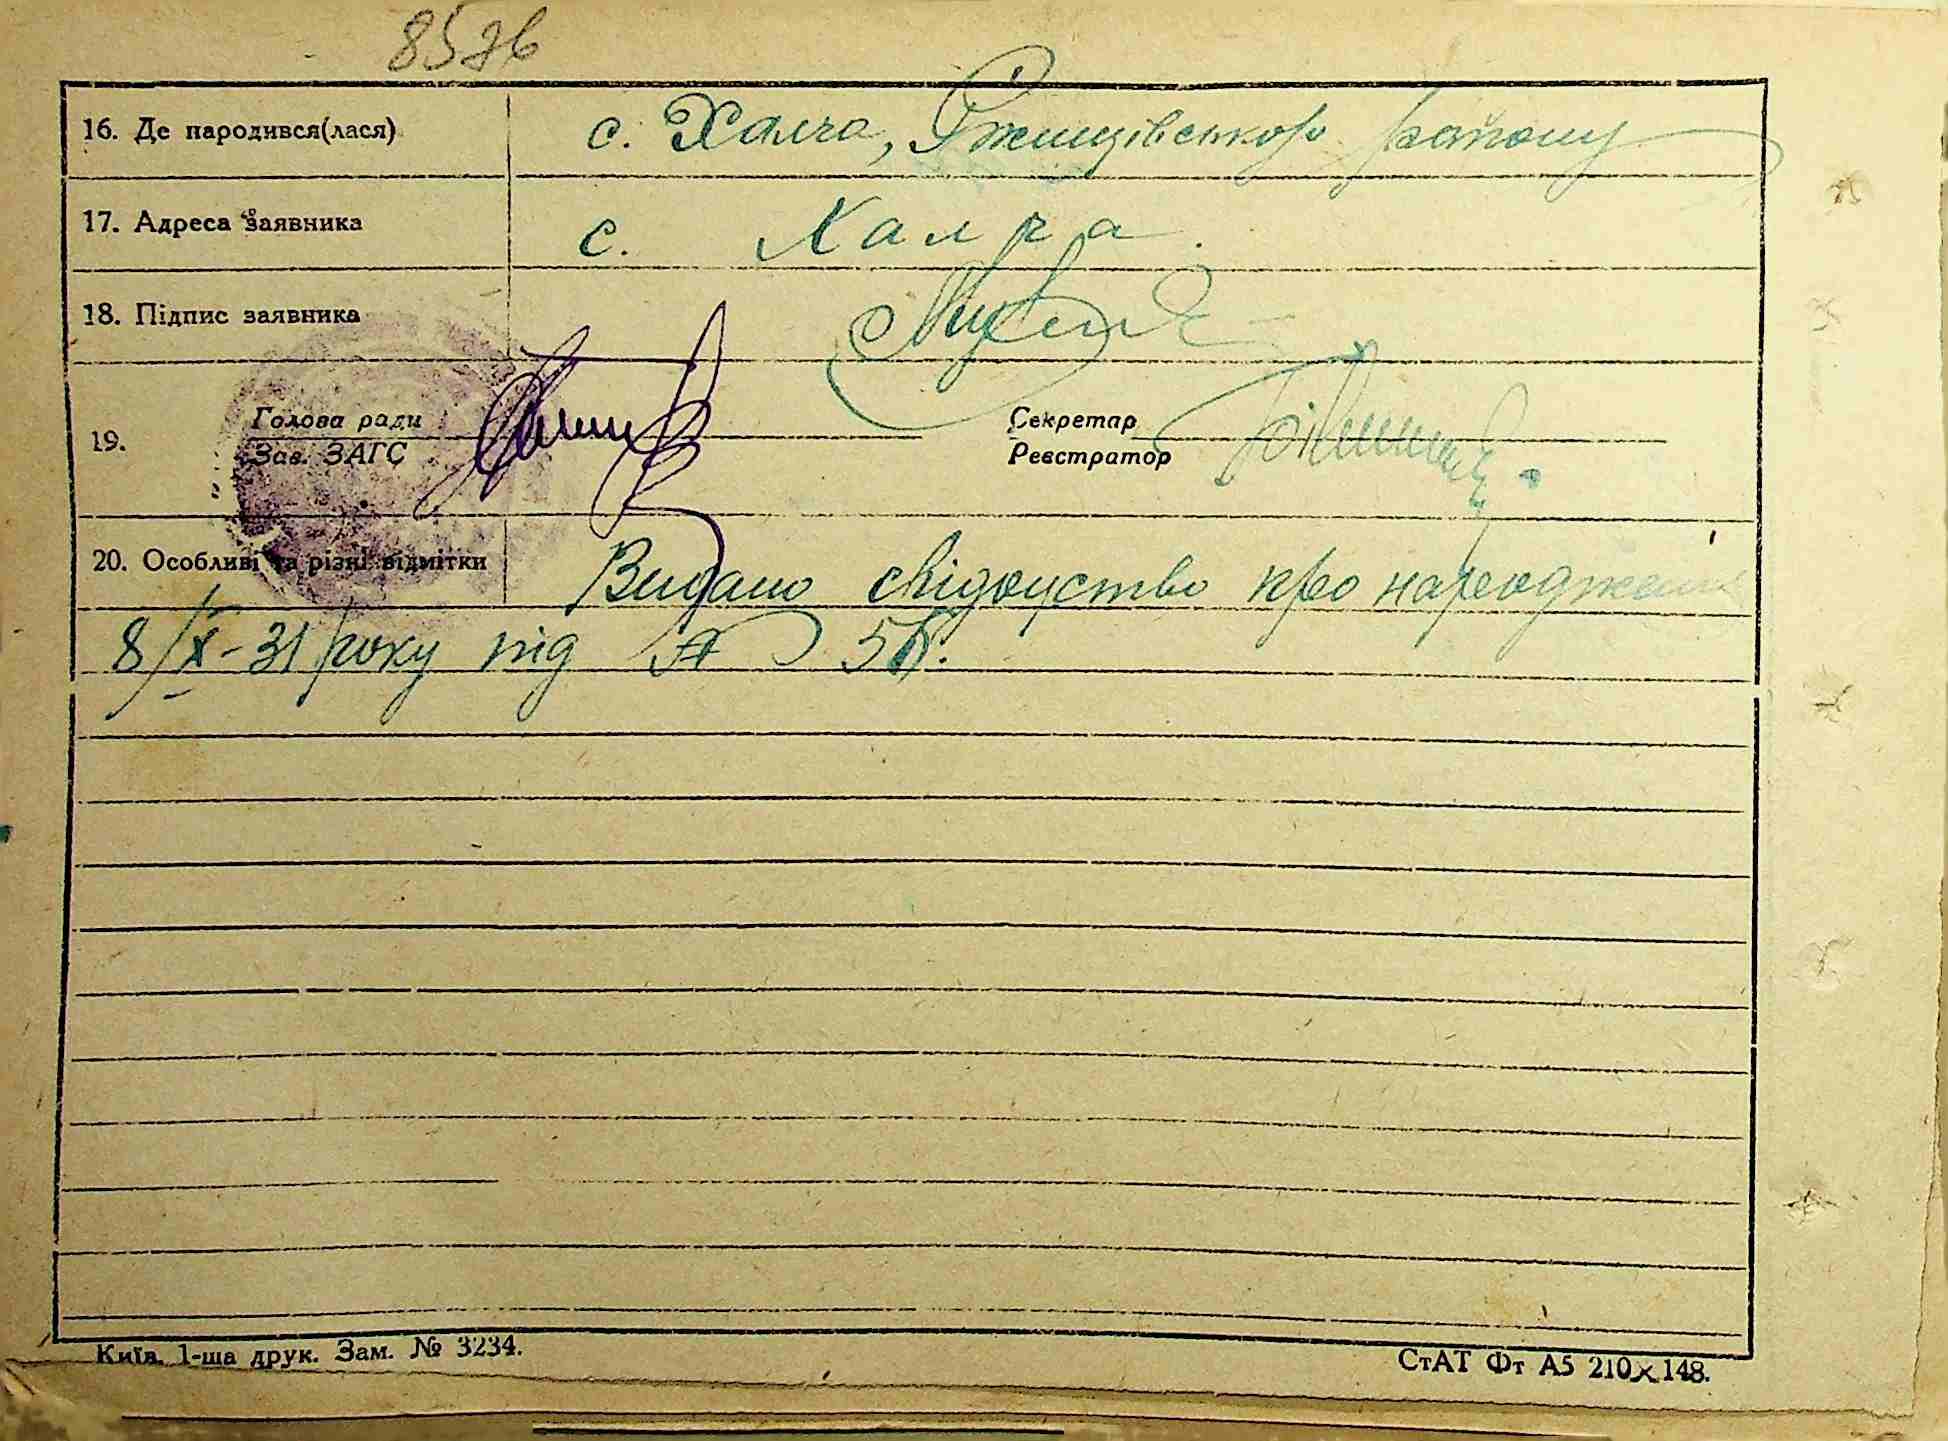 857в
16. Де народився(лася) с. Халча, Ржищівського району
17. Адреса заявника с. Халча.
18. Підпис заявника
19. Голова ради Секретар
Зав. ЗАГС Реєстратор
20. Особливі та різні відмітки Видано свідоцтво про народження
8/X-31 року під №
Київ. 1-ша друк. Зам. № 3234.
СтАТ Фт А5 210×148.